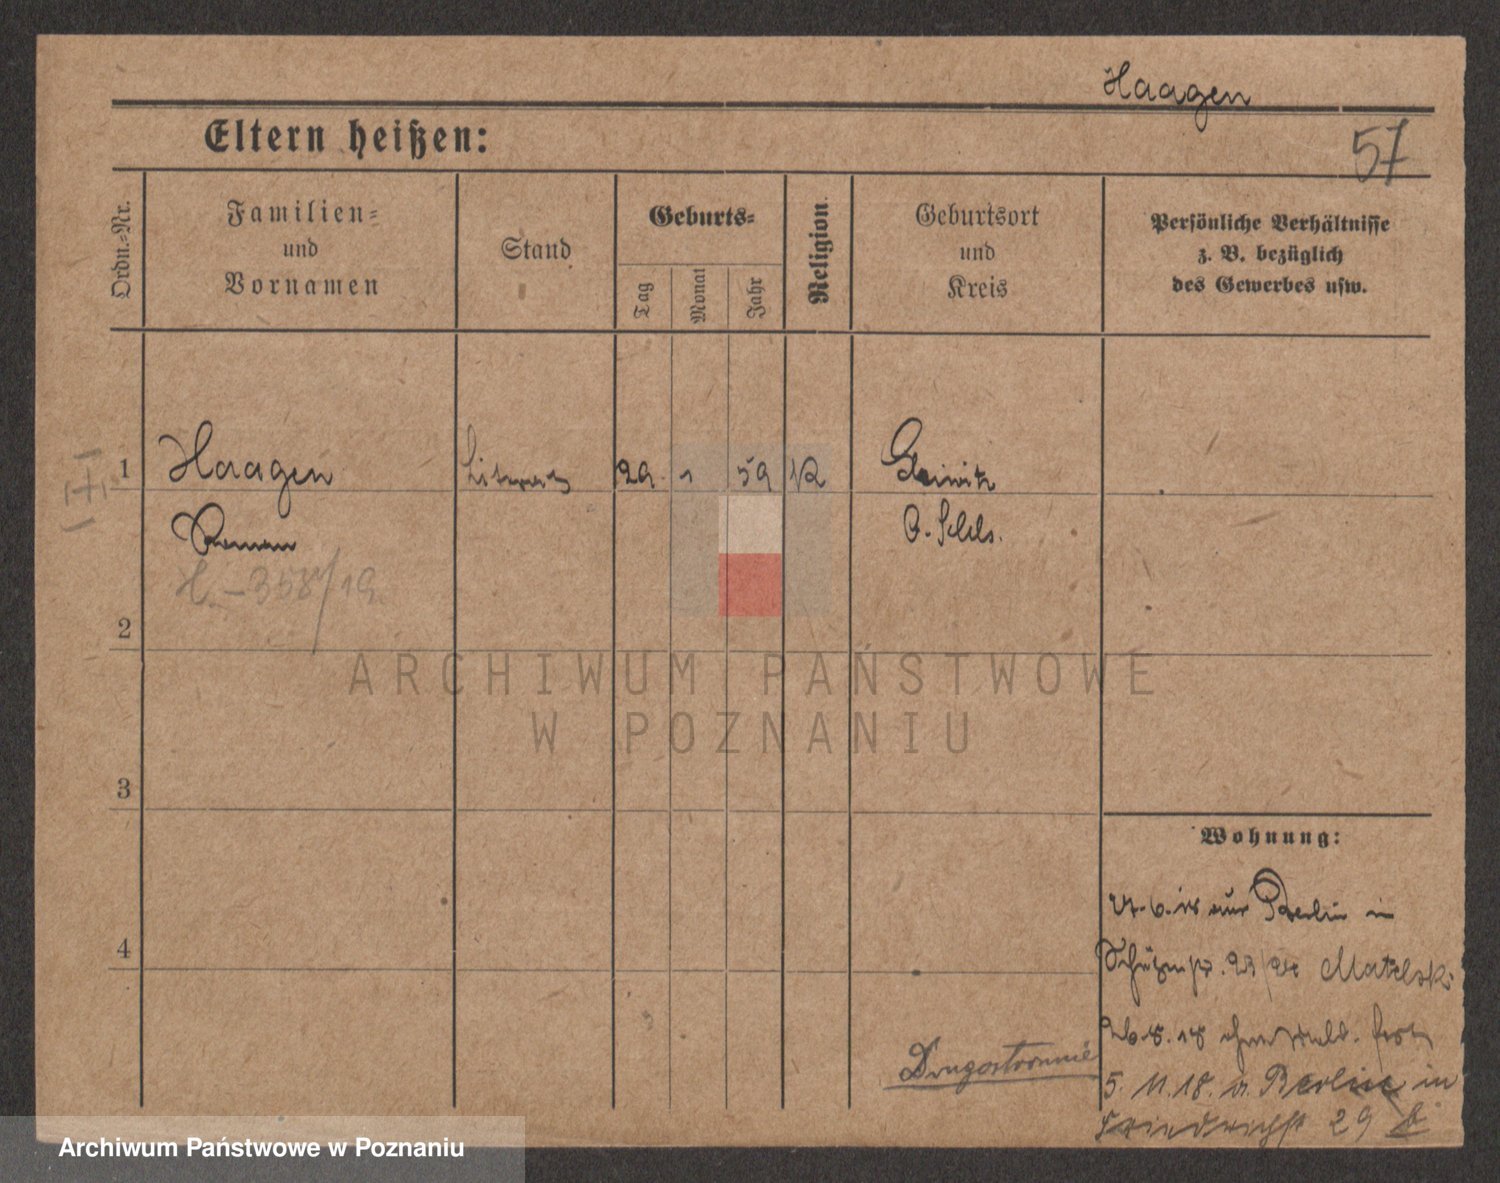 Haagen
57
Eltern heißen:
Ordn.-Nr.
Familien-
und
Vornamen
Stand
Geburts-
Tag
Monat
Jahr
Religion.
Geburtsort
und
Kreis
Persönliche Verhältnisse
z. B. bezüglich
des Gewerbes usw.
1
Haagen
29. 1 59
K
Gleiwitz
Roman
O. Schls.
H.-358/19
2
ARCHIWUM PAŃSTWOWE
W POZNANIU
3
Wohnung:
27.6.18 aus Berlin in
4
Matelski
26.8.18 ohne Meld. fort
Drugostronnie
5. 11. 18. v. Berlin in
Friedrichst 29
Archiwum Państwowe w Poznaniu